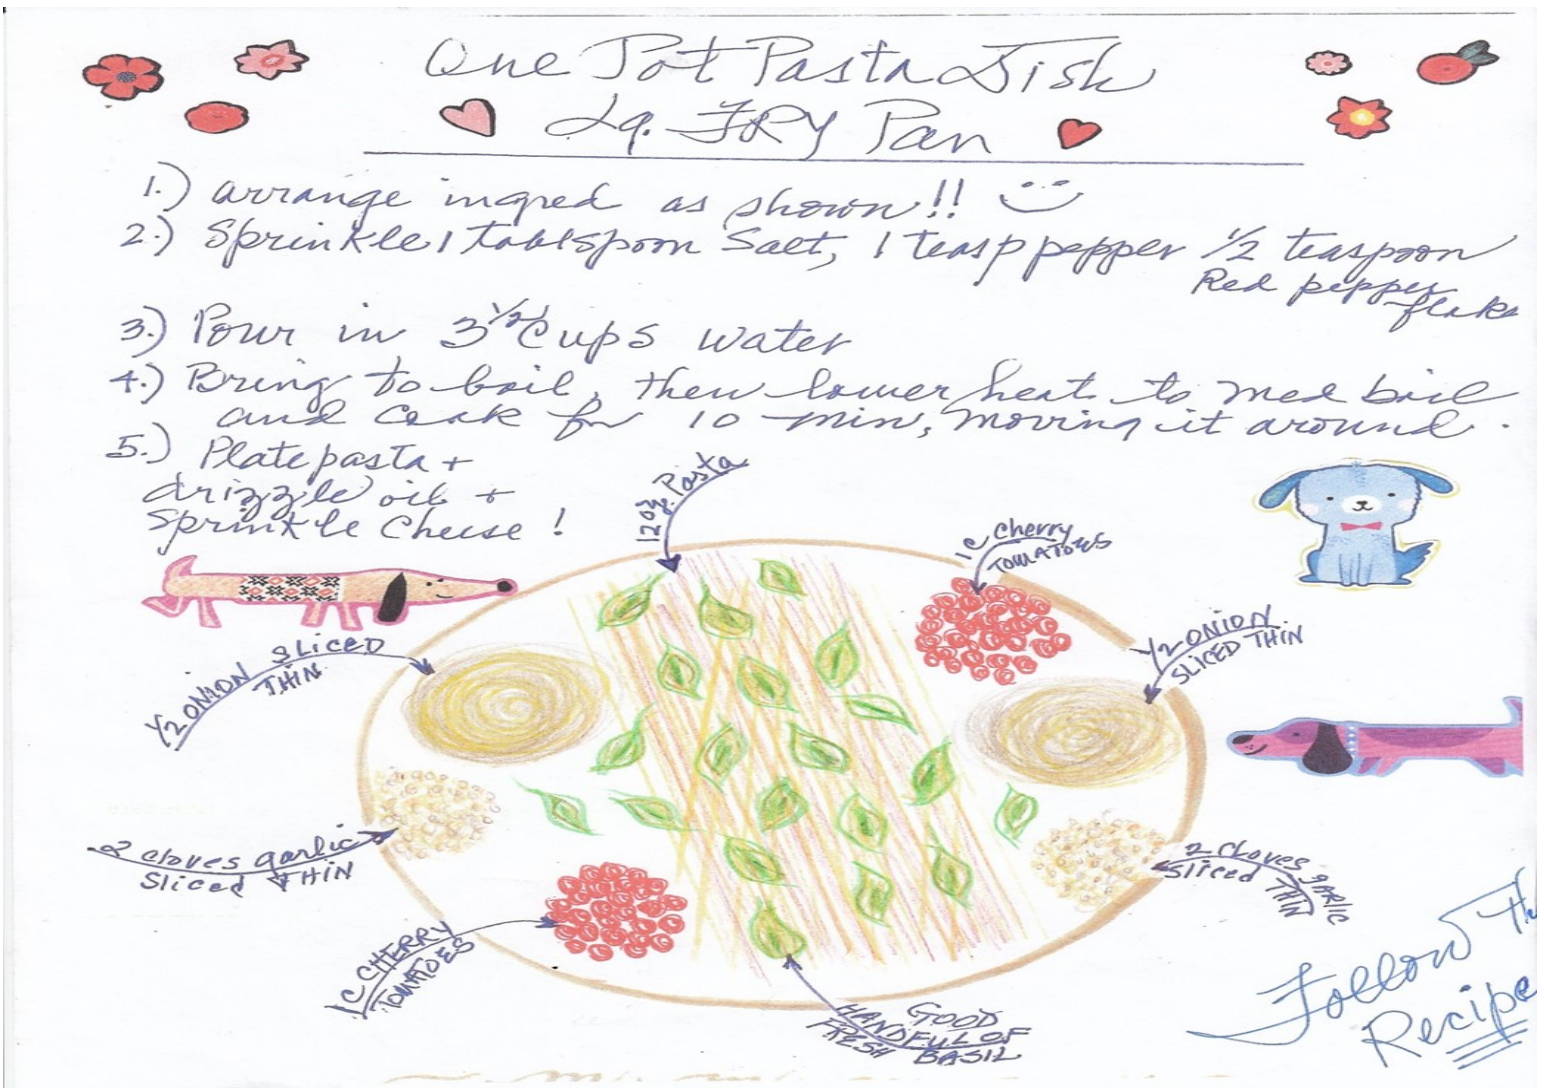 One Pot Pasta Dish
Lg. FRY Pan
1.) arrange ingred as shown!!
2.) Sprinkle 1 tablspoon Salt, 1 teasp pepper 1/2 teaspoon
Red pepper
flaks
3.) Pour in 3 1/2 Cups water
4.) Bring to boil, then lower heat to med boil
and cook for 10 min, moving it around.
5.) Plate pasta +
drizzle oil +
Sprinkle Cheese!
12 oz. Pasta
1 C Cherry
TOMATOES
1/2 ONION SLICED
THIN
1/2 ONION
SLICED THIN
2 cloves garlic
Sliced THIN
2 CLOVES gARLIC
Sliced THIN
1 C CHERRY
TOMATOES
GOOD
HANDFUL OF
FRESH BASIL
Follow Th
Recipe